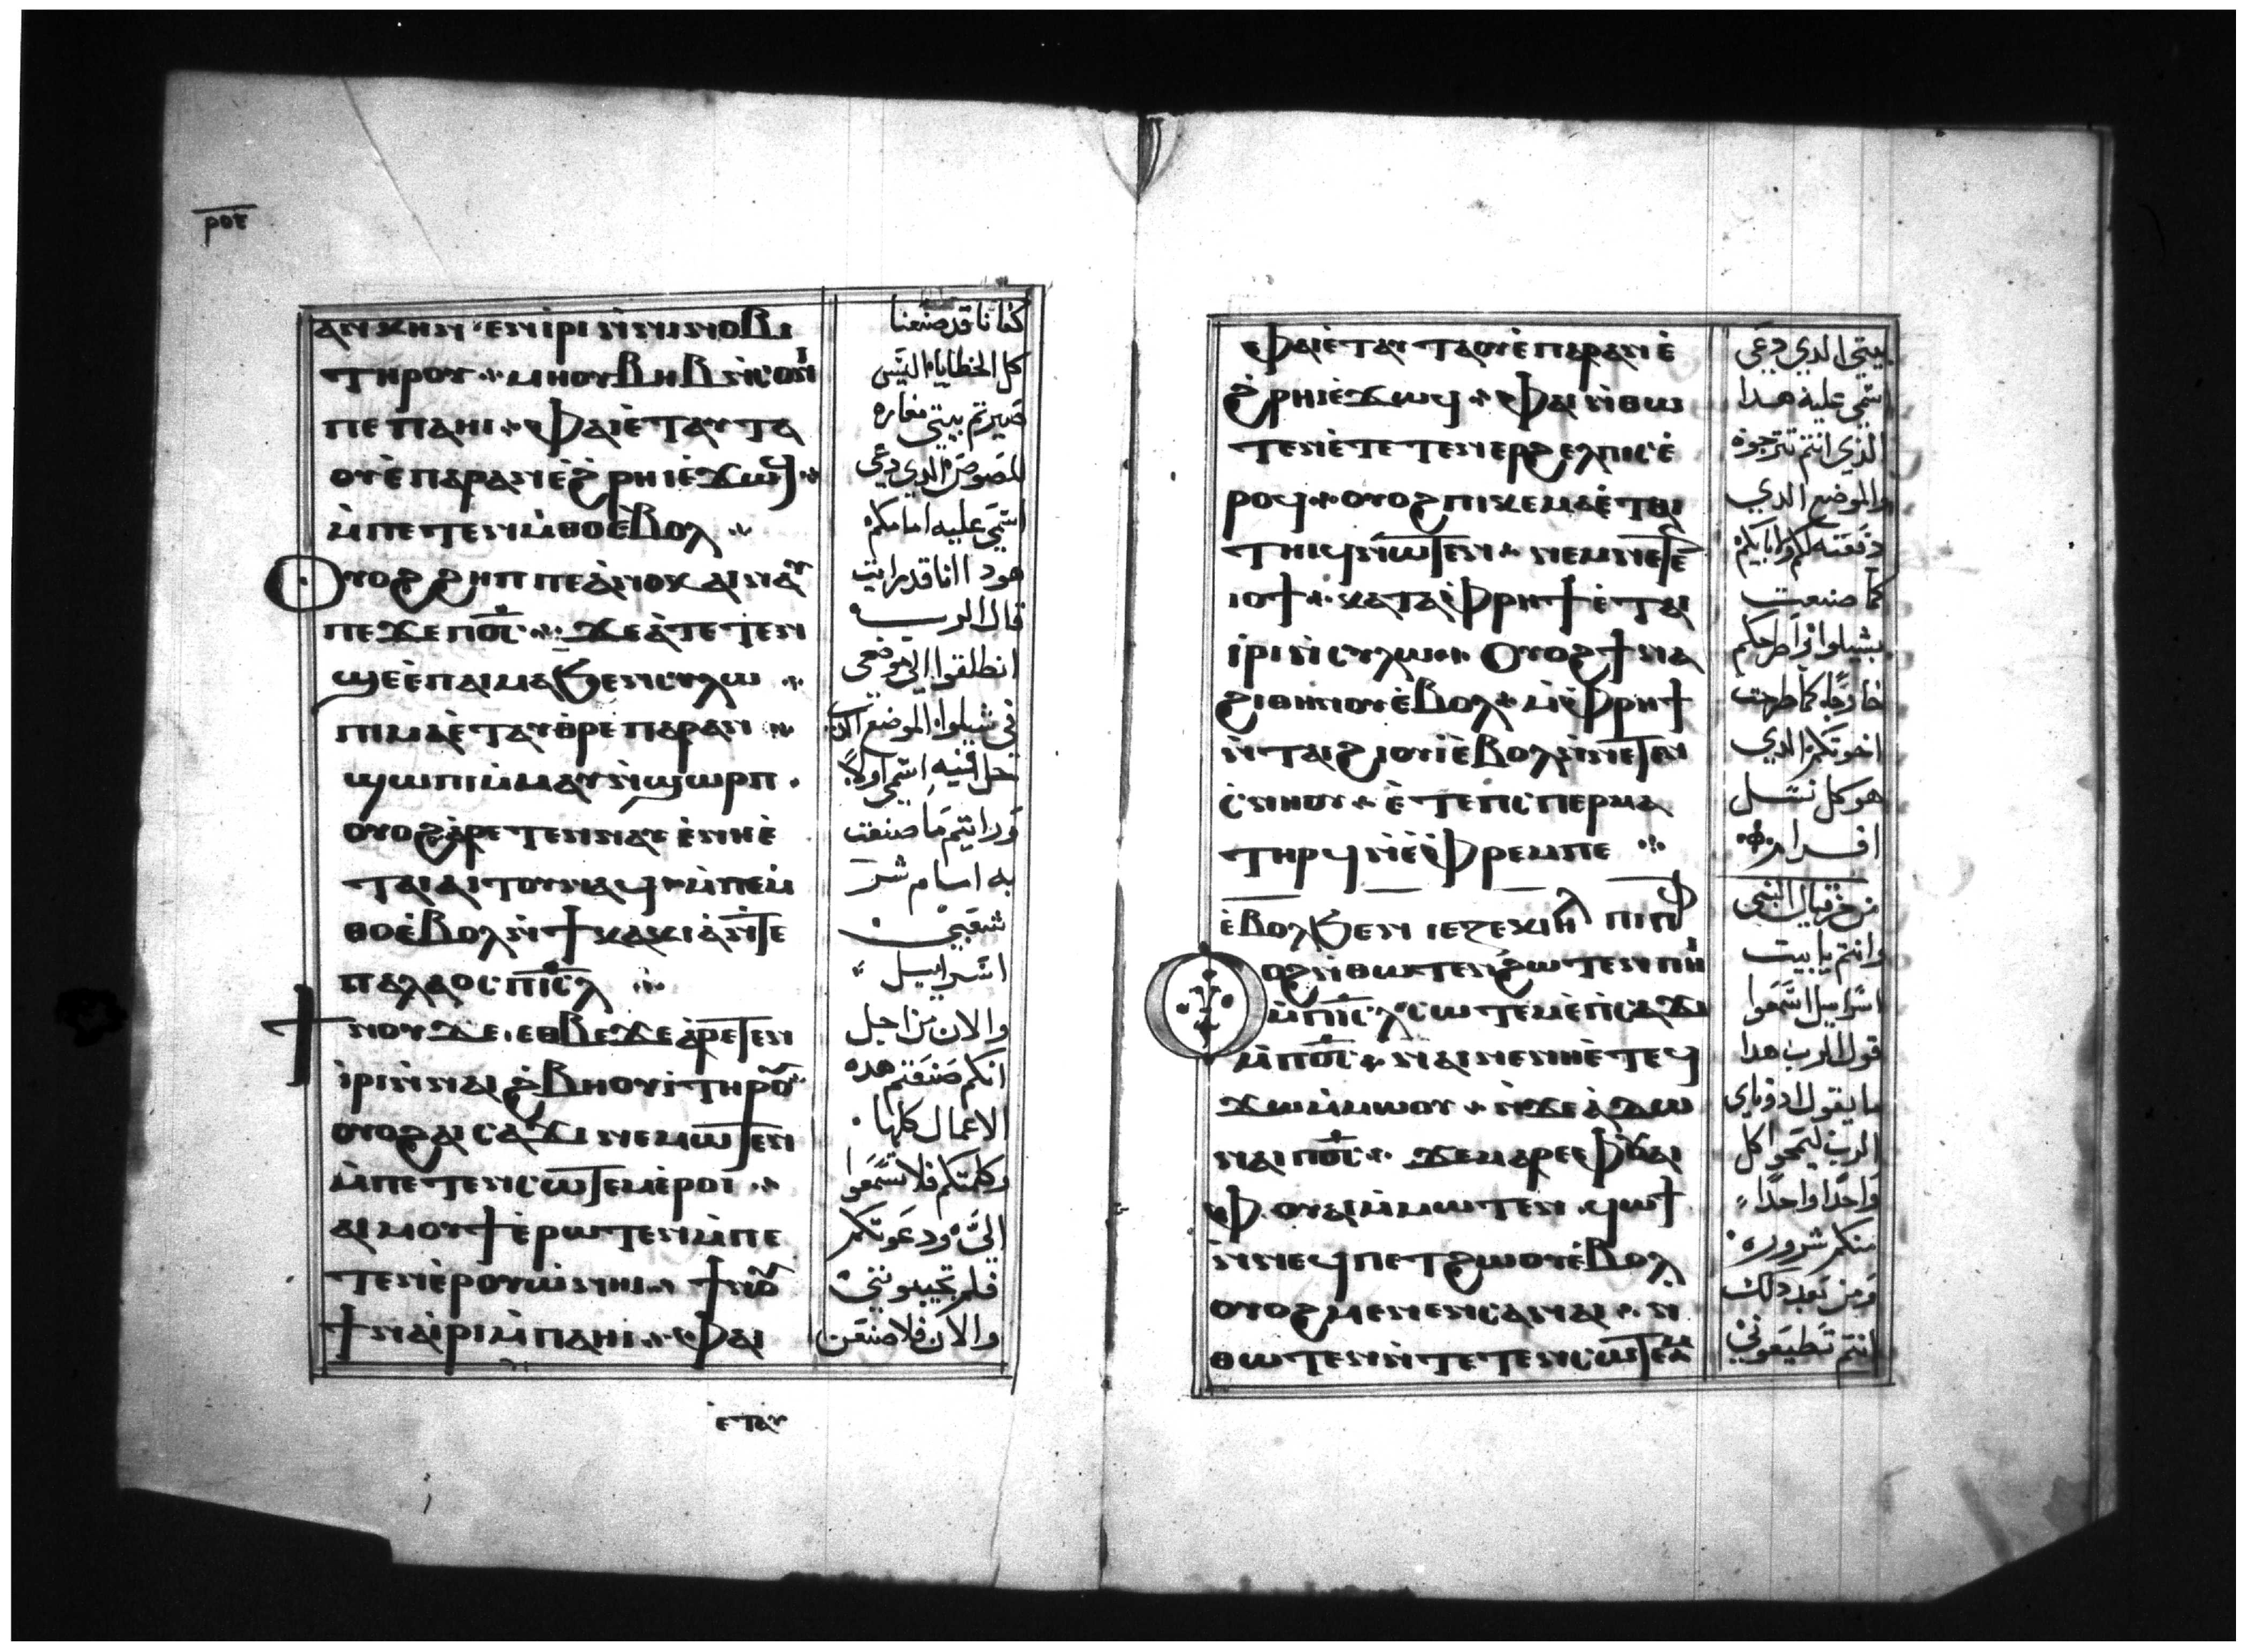 ⲣⲟⲉ
ⲁⲛⲭⲏⲛ ⲉⲛⲓ̀ⲣⲓ ⲛ̀ⲛⲓⲛⲟⲃⲓ
ⲧⲏⲣⲟⲩ ⲙⲏ ⲟⲩⲃⲏⲃ ⲛ̀ⲥⲟⲛⲓ
ⲡⲉ ⲡⲁⲏⲓ ⲫⲁⲓ ⲉ̀ⲧⲁⲩⲧⲁ
ⲟⲩⲉ̀ ⲡⲁⲣⲁⲛ ⲉ̀ϩⲣⲏⲓ ⲉ̀ϫⲱϥ
ⲙ̀ⲡⲉⲧⲉⲛⲙ̀ⲑⲟ ⲉ̀ⲃⲟⲗ
ⲟⲩⲟϩ ϩⲏⲡⲡⲉ ⲁ̀ⲛⲟⲕ ⲁⲓⲛⲁⲩ
ⲡⲉϫⲉ ⲡⲟ̅ⲥ̅ ϫⲉ ⲁ̀ⲧⲉⲧⲉⲛ
ϣⲉ ⲉ̀ⲡⲁⲓⲙⲁ ϧⲉⲛ ⲥⲩⲗⲱ
ⲡⲓⲙⲁ ⲉ̀ⲧⲁⲩⲑⲣⲉ ⲡⲁⲣⲁⲛ
ϣⲱⲡⲓ ⲙ̀ⲙⲁⲩ ⲛ̀ϣⲱⲣⲡ
ⲟⲩⲟϩ ⲁ̀ⲣⲉⲧⲉⲛⲛⲁⲩ ⲉ̀ⲛⲏⲉ̀
ⲧⲁⲓⲁⲓⲧⲟⲩ ⲛⲁϥ ⲙ̀ⲡⲉⲙ̀
ⲑⲟ ⲉ̀ⲃⲟⲗ ⲛ̀ϯⲕⲁⲕⲓⲁ ⲛ̀ⲧⲉ
ⲡⲁⲗⲁⲟⲥ ⲡⲓ̅ⲥ̅ⲗ̅
ϯⲛⲟⲩ ϫⲉ ⲉⲑⲃⲉ ϫⲉ ⲁⲣⲉⲧⲉⲛ
ⲓ̀ⲣⲓ ⲛ̀ⲛⲁⲓϩⲃⲏⲟⲩⲓ̀ ⲧⲏⲣⲟⲩ
ⲟⲩⲟϩ ⲁⲓⲥⲁϫⲓ ⲛⲉⲙⲱⲧⲉⲛ
ⲙ̀ⲡⲉⲧⲉⲛⲥⲱⲧⲉⲙ ⲉ̀ⲣⲟⲓ
ⲁⲓⲙⲟⲩϯ ⲉ̀ⲣⲱⲧⲉⲛ ⲙ̀ⲡⲉ
ⲧⲉⲛⲉ̀ⲣⲟⲩⲱ̀ ⲛⲏⲓ ϯⲛⲟⲩ
ϯⲛⲁⲓ̀ⲣⲓ ⲙ̀ⲡⲁⲏⲓ ⲫⲁⲓ
ⲉⲧⲁⲩ
كفانا قد صنعنا
كل الخطايا اليس
صيرتم بيتي مغاره
للصوص الدي دعي
اسمي عليه امامكم
هودا انا قد رايت
قال الرب
انطلقوا الي موضعي
في شيلوا الموضع الدي
حل فيه اسمي اولا
ورايتم ما صنعت
به امام شر
شعبي
اسراييل
والان من اجل
انكم صنعتم هده
الاعمال كلها
وكلمتكم فلا تسمعوا
الي ودعوتكم
فلم تجيبونني
والان فلاصنعن
ⲫⲁⲓ ⲉ̀ⲧⲁⲩⲧⲁⲟⲩⲉ̀ ⲡⲁⲣⲁⲛ ⲉ̀
ϩⲣⲏⲓ ⲉ̀ϫⲱϥ ⲫⲁⲓ ⲛ̀ⲑⲱ
ⲧⲉⲛ ⲉ̀ⲧⲉⲧⲉⲛⲉⲣϩⲉⲗⲡⲓⲥ ⲉ̀
ⲣⲟϥ ⲟⲩⲟϩ ⲡⲓⲕⲉⲙⲁ ⲉ̀ⲧⲁⲓ
ⲧⲏⲓϥ ⲛⲱⲧⲉⲛ ⲛⲉⲙ ⲛⲉⲧⲉ
ⲓⲟϯ ⲕⲁⲧⲁ ⲫⲣⲏϯ ⲉ̀ⲧⲁⲓ
ⲓ̀ⲣⲓ ⲛ̀ⲥⲩⲗⲱ ⲟⲩⲟϩ ϯⲛⲁ
ϩⲓⲑⲏⲛⲟⲩ ⲉ̀ⲃⲟⲗ ⲙ̀ⲫⲣⲏϯ
ⲛ̀ⲧⲁⲓϩⲓⲟⲩⲓ̀ ⲉ̀ⲃⲟⲗ ⲛ̀ⲛⲉⲧⲉⲛ
ⲥ̀ⲛⲏⲟⲩ ⲉ̀ⲧⲉ ⲡⲥⲡⲉⲣⲙⲁ
ⲧⲏⲣϥ ⲛ̀ⲉ̀ⲫⲣⲉⲙⲡⲉ
ⲉ̀ⲃⲟⲗϧⲉⲛ ⲓⲉⲍⲉⲕⲓⲏⲗ ⲡⲓⲡⲣⲟⲫ
ⲟⲩⲟϩ ⲛ̀ⲑⲱⲧⲉⲛ ϩⲱⲧⲉⲛ ⲡⲏⲓ
ⲙ̀ⲡⲓ̅ⲥ̅ⲗ̅ ⲥⲱⲧⲉⲙ ⲉ̀ⲡⲥⲁϫⲓ
ⲙ̀ⲡⲟ̅ⲥ̅ ⲛⲁⲓ ⲛⲉ ⲛⲏⲉ̀ⲧⲉϥ
ϫⲱ ⲙ̀ⲙⲱⲟⲩ ⲛ̀ϫⲉ ⲁ̀ⲇⲱ
ⲛⲁⲓ ⲡⲟ̅ⲥ̅ ϫⲉ ⲙⲁⲣⲉ ⲫⲟⲩⲁⲓ
ⲫⲟⲩⲁⲓ ⲙ̀ⲙⲱⲧⲉⲛ ϥⲱϯ
ⲛ̀ⲛⲉϥⲡⲉⲧϩⲱⲟⲩ ⲉ̀ⲃⲟⲗ
ⲟⲩⲟϩ ⲙⲉⲛⲉⲛⲥⲁ ⲛⲁⲓ ⲛ̀
ⲑⲱⲧⲉⲛ ⲛ̀ⲧⲉⲧⲉⲛⲥⲱⲧⲉⲙ
بيتي الدي دعي
اسمي عليه هدا
الذي انتم تترجوه
والموضع الدي
دفعته لكم ولابايكم
كما صنعت
بشيلوا واطرحكم
خارجا كما طرحت
اخوتكم الدي
هو كل نسل
افرام
من حزقيال النبي
وانتم يا بيت
اسراييل اسمعوا
قول الرب هدا
ما يقول ادوناي
الرب ليمحوا كل
واحدا واحدا
منكم شروره
ومن بعد دلك
انتم تطيعوني